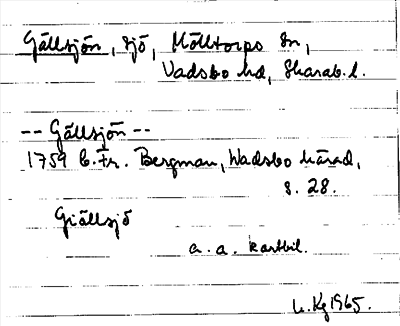 Gällsjön, sjö, Mölltorps sn,
Vadsbo hd, Skarab.l.
-- Gällsjön --
1759 C. Fr. Bergman, Wadsbo härad,
s. 28.
Giällsjö
a. a. kartbil.
Kg 1965.